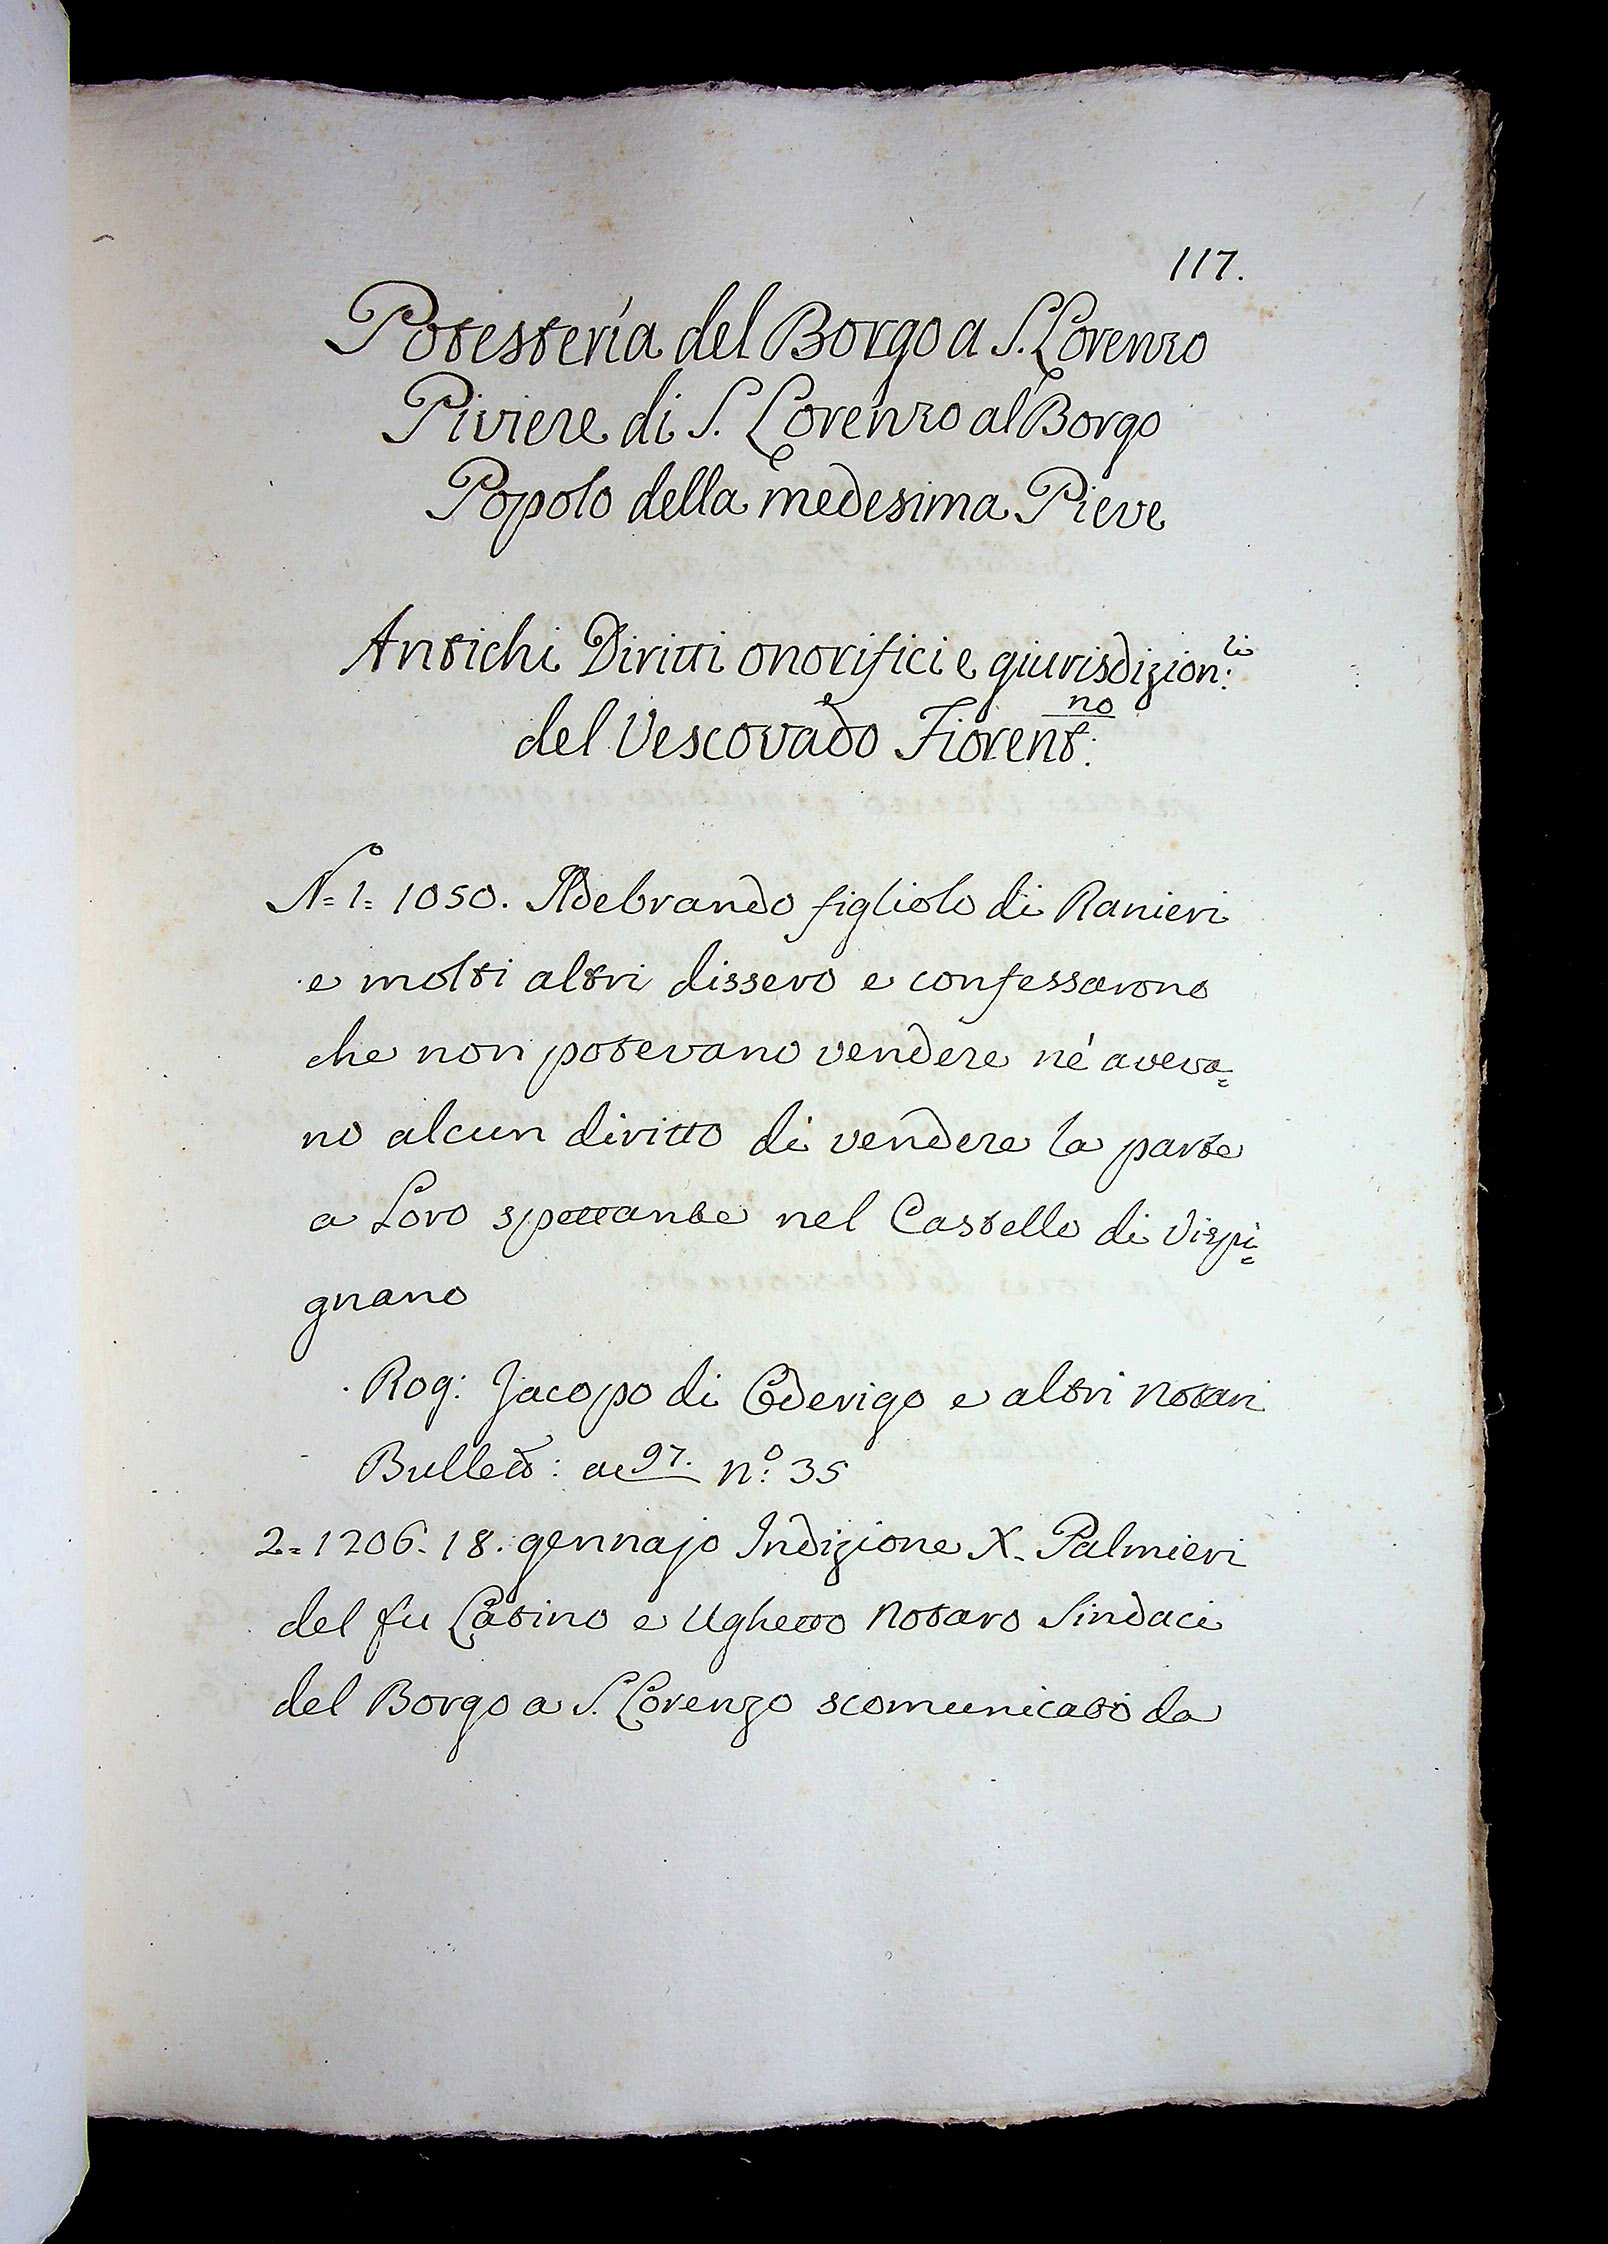 117.
Potestería del Borgo a S. Lorenzo
Piviere di S. Lorenzo al Borgo
Popolo della medesima Pieve
Antichi Diritti onorifici e giurisdizion:li
del Vescovado Fiorent:no
No=1= 1050. Ildebrando figliolo di Ranieri
e molti altri dissero e confessarono
che non potevano vendere né aveva=
no alcun diritto di vendere la parte
a Loro spettante nel Castello di Vispi=
gnano
Rog: Jacopo di Ederigo e altri Notari
Bullett: a 97. no: 35
2=1206. 18. gennajo Indizione X. Palmieri
del fu Catino e Ughetto Notaro Sindaci
del Borgo a S. Lorenzo scomunicati da